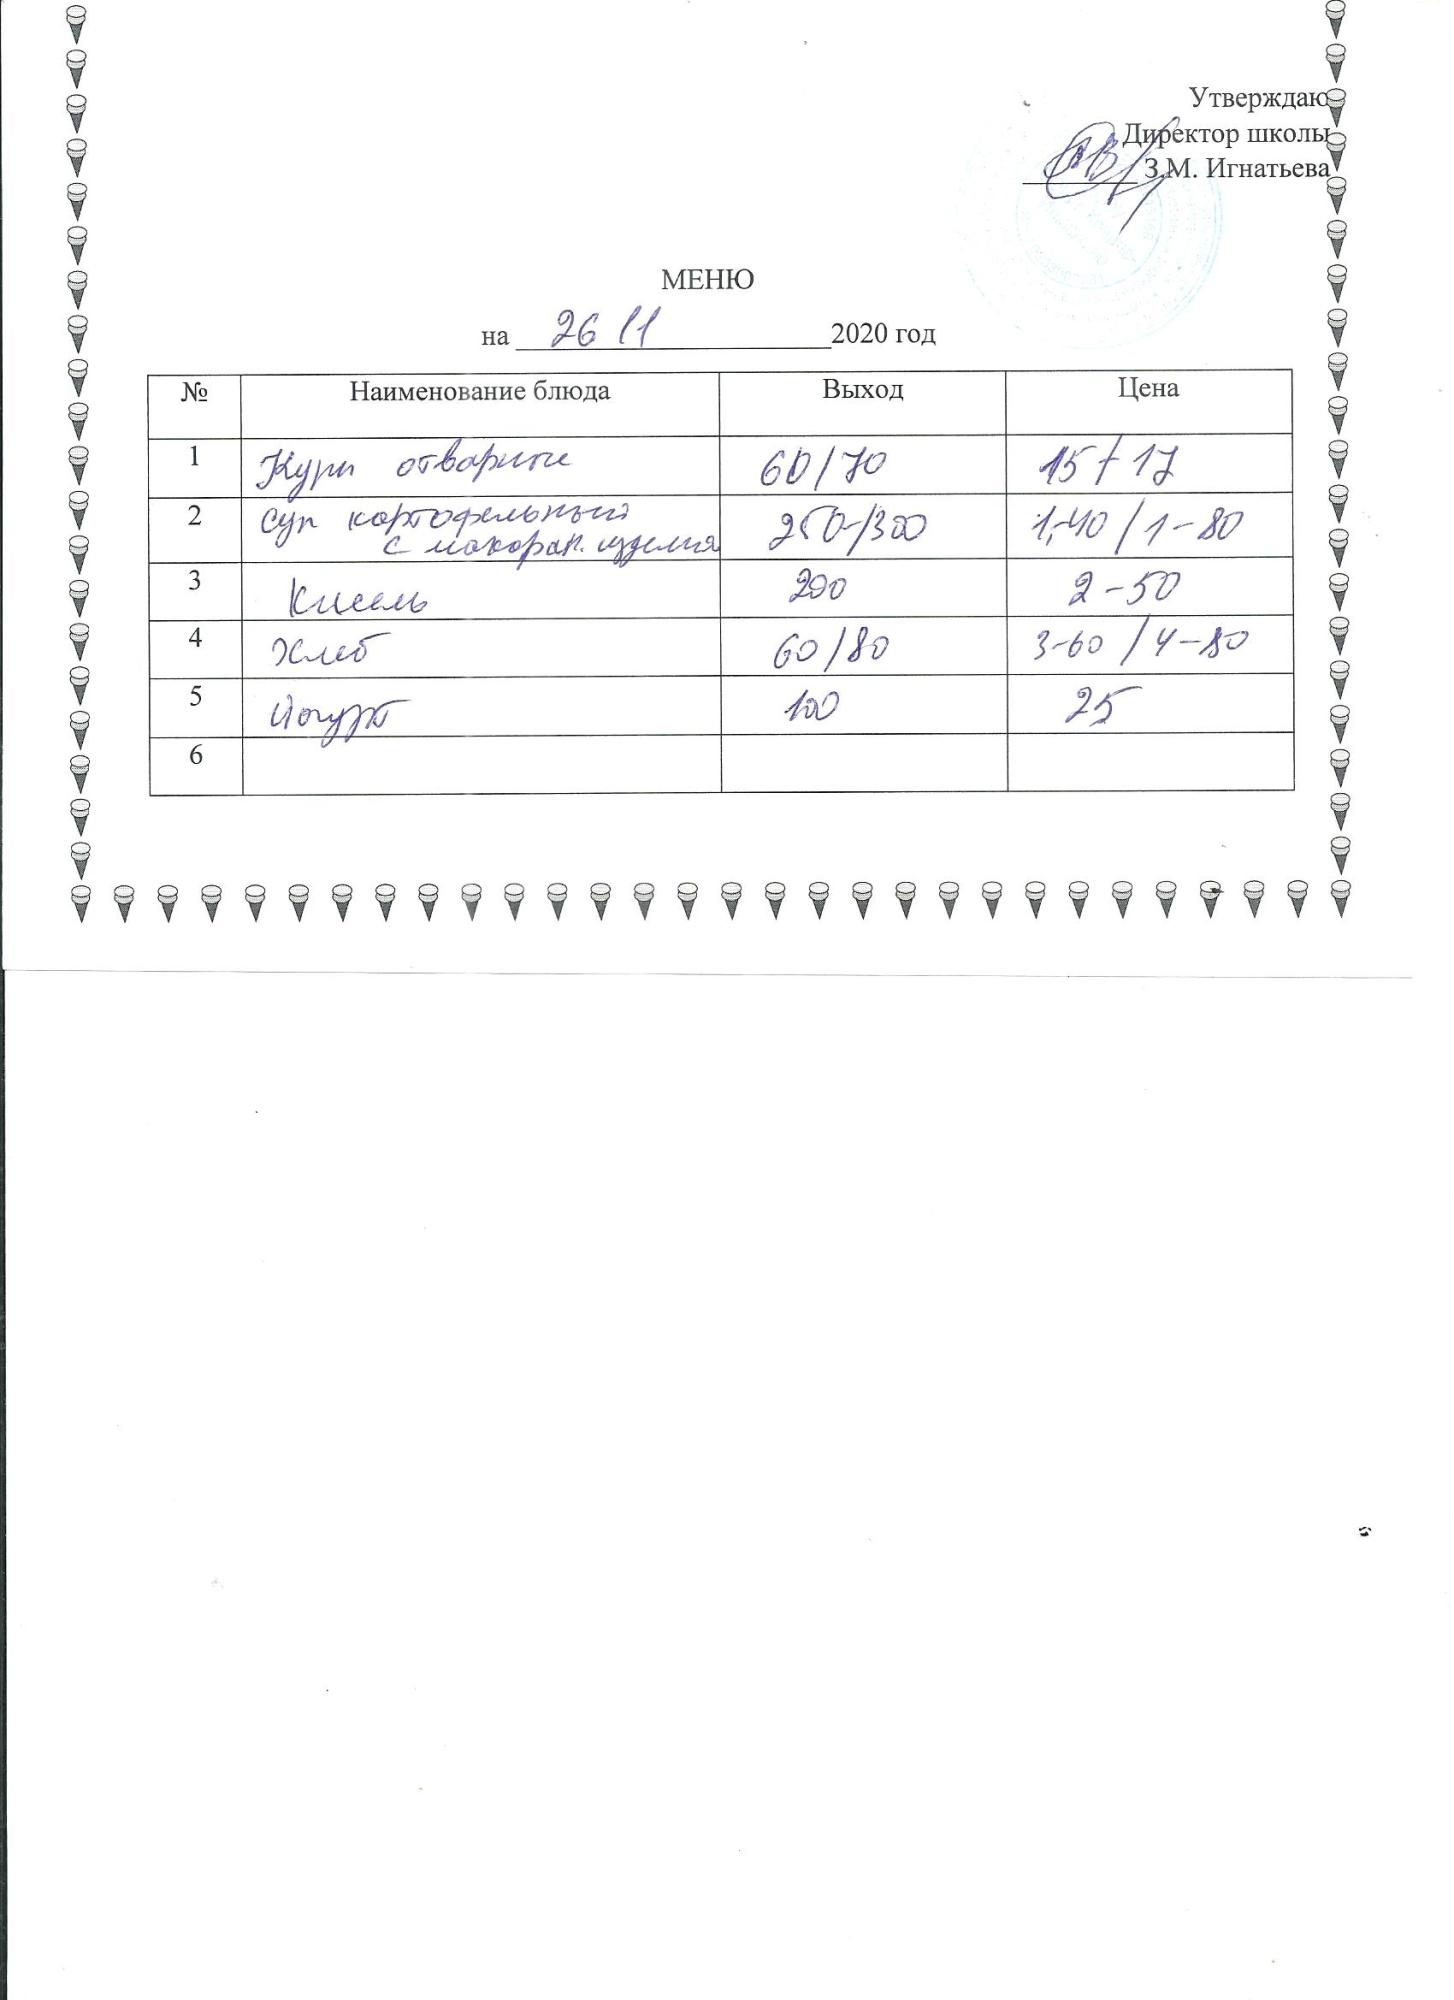 Утверждаю
Директор школы
З.М. Игнатьева
МЕНЮ
на 26 11 2020 год
№ Наименование блюда Выход Цена
1 Куры отварные 60/70 15/17
2 Суп картофельный 250/300 1-40/1-80
с макорон. изделия
3 Кисель 200 2-50
4 Хлеб 60/80 3-60/4-80
5 Йогурт 100 25
6